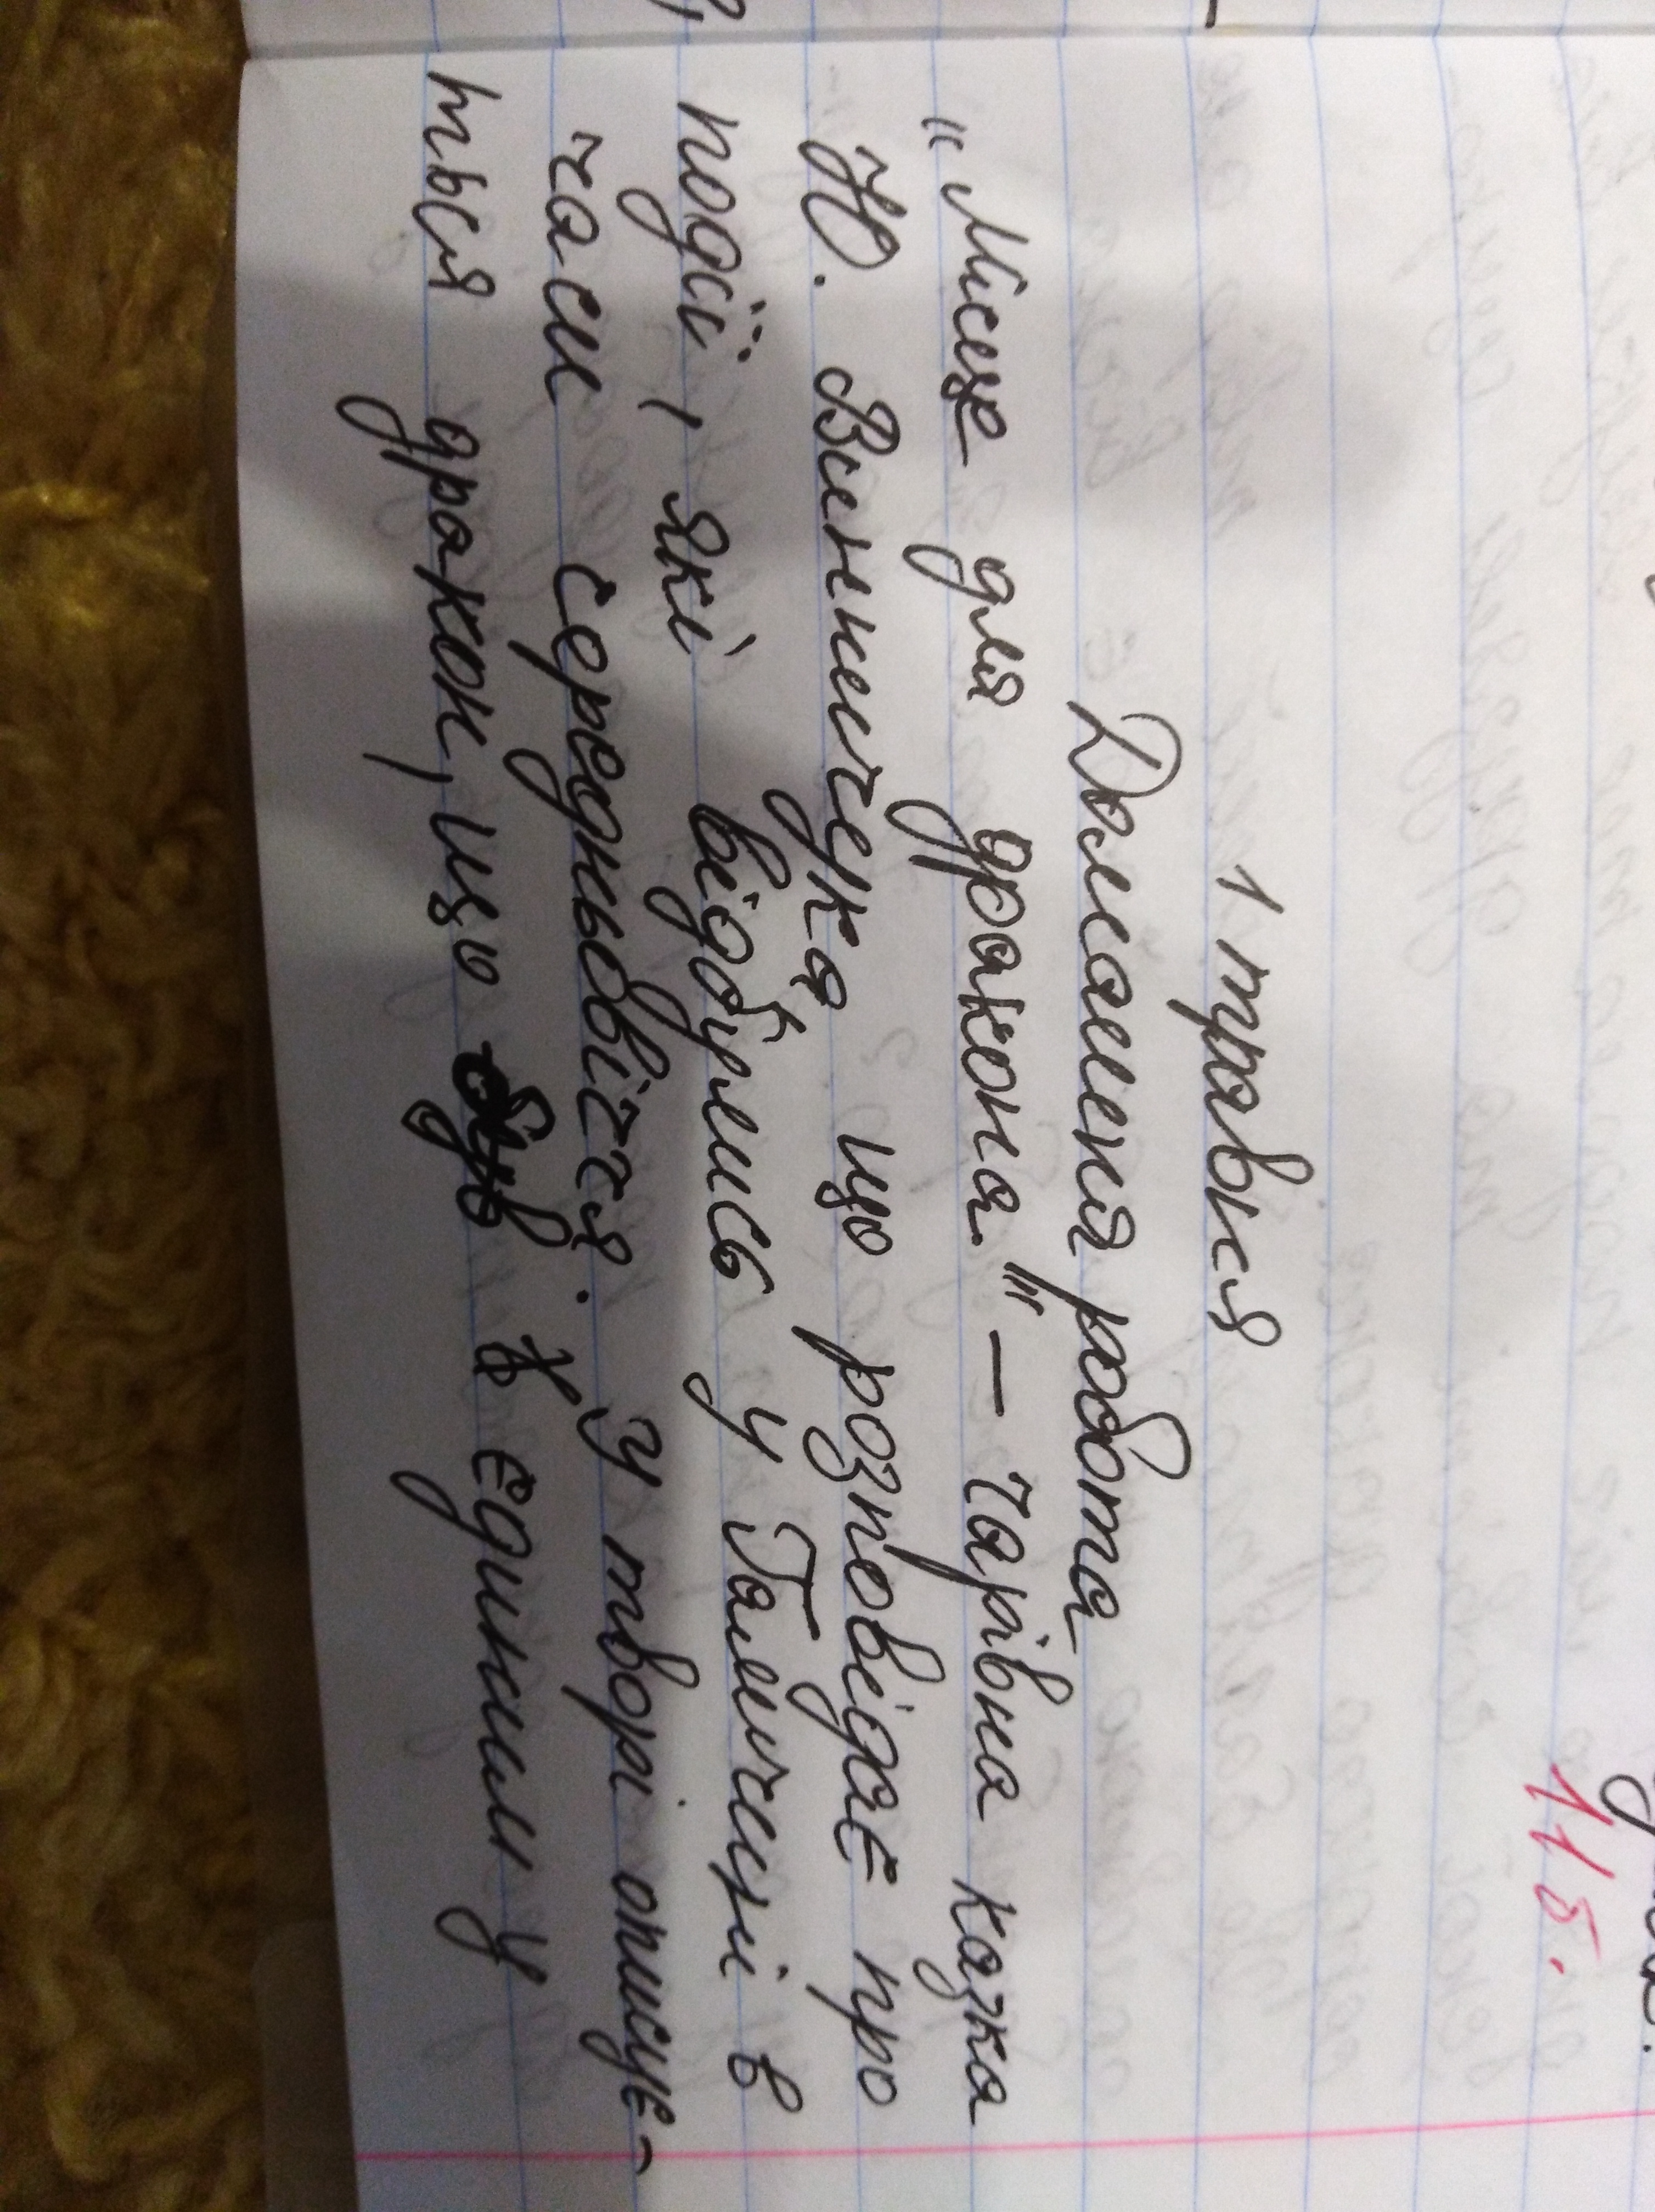 11 б.
1 травня
Домашня робота
"Місце для дракона" – чарівна казка
Ю. Винничука що розповідає про
події, які відбулись у Галичині в
часи середньовіччя. У творі описує-
ться дракон, що був є єдиним у